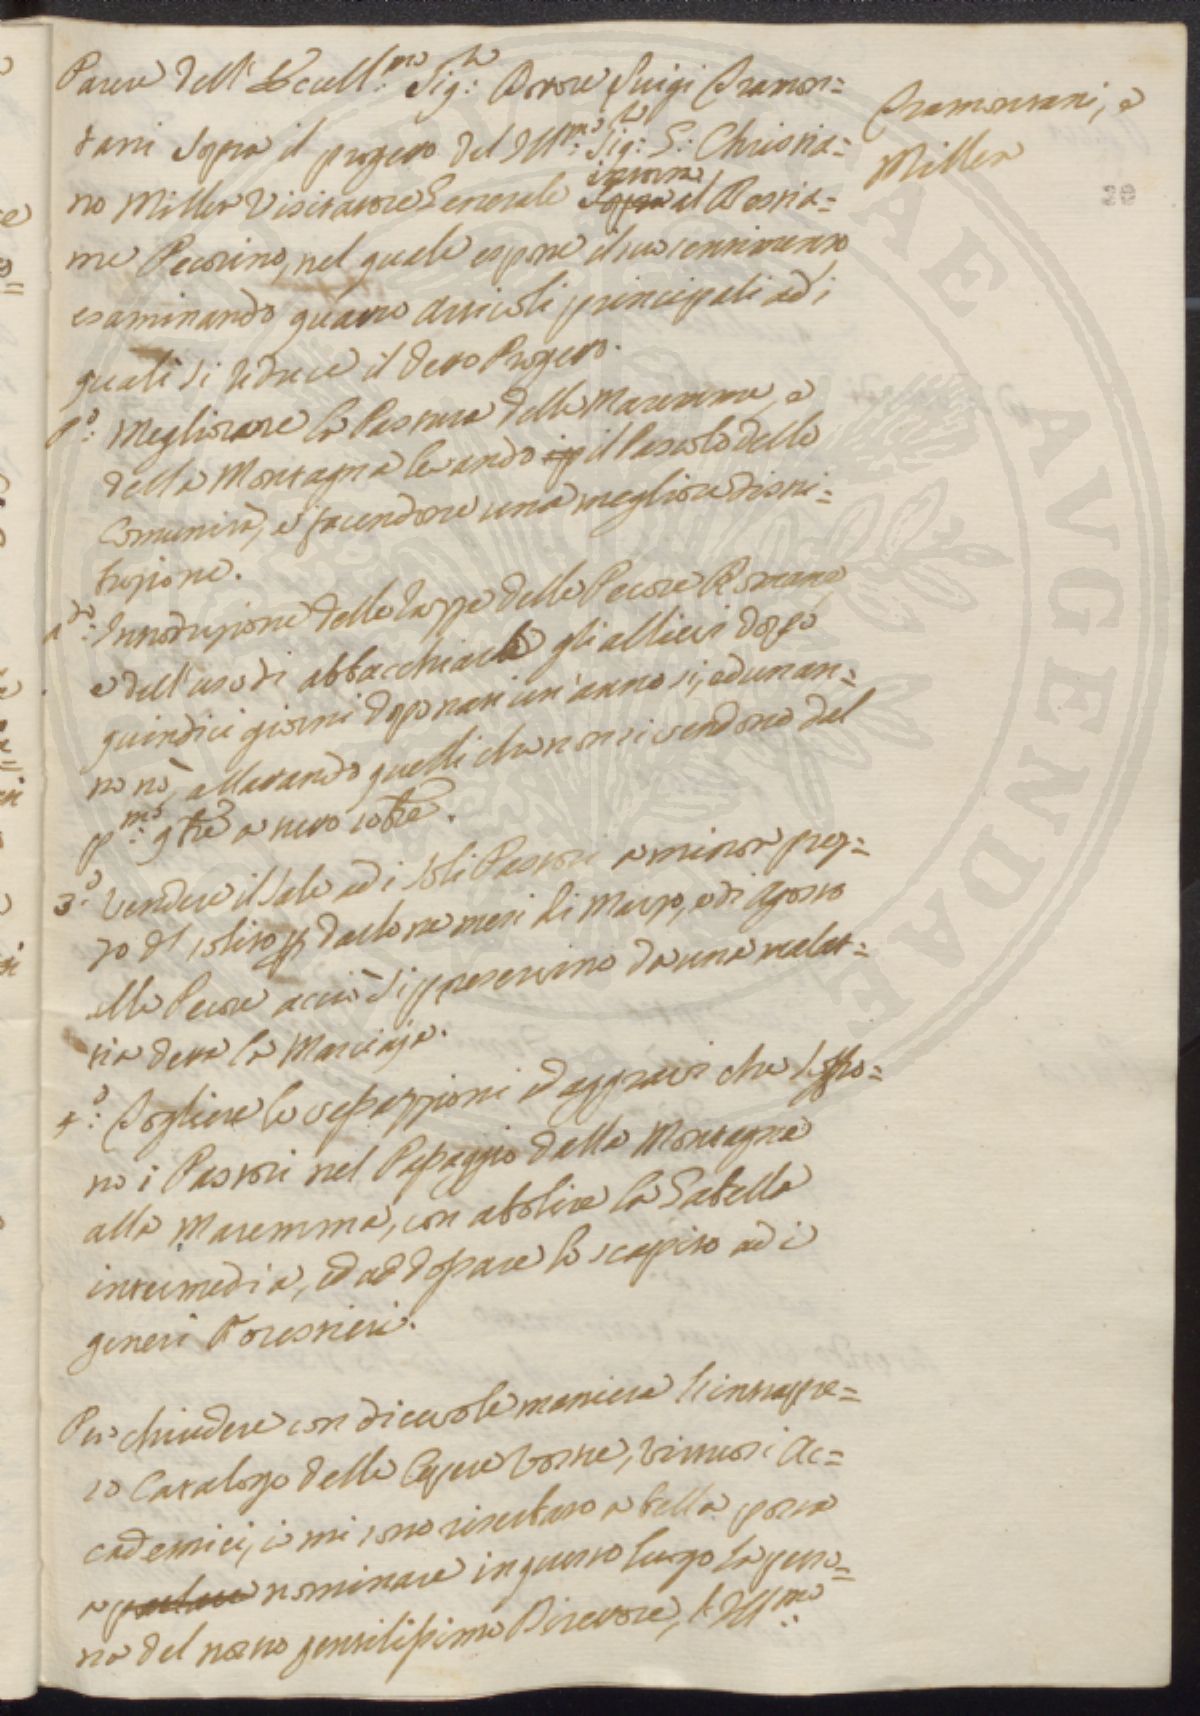 Parere dell' Eccell.mo Sig.r Dottore Luigi Tramon=
tani sopra il progetto del Ill.mo Sig.r G. Christia=
no Miller Visitatore Generale sopra intorno al Bestia=
me Pecorino, nel quale espone il suo sentimento
esaminando quattro Articoli principali ad i
quali si riduce il detto Progetto.
P.o: Megliorare la Pastura delle Maremme, e
della Montagna levando il Pascolo delle
Comunità, e facendone una megliore distri=
buzione.
2.do: Introduzione delle Razze delle Pecore Romane,
e dell'uso di abbacchiare gli allievi dopo
quindici giorni dopo nati un'anno si, ed un an=
no nò, allattando quelli che non si vendono dal
p.mo 9bre a tutto xbre.
3.o: Vendere il Sale ad i soli Pastori a minor prez=
zo del solito per darlo ne mesi di Marzo, e di Agosto
alle Pecore acciò si preservino da una malat=
tia detta la Marciaja.
4.o: Togliere le vessazzioni ed aggravi che soffro=
no i Pastori nel Passaggio dalla Montagna
alla Maremma, con abolire la Gabella
intermedia, ed addossare lo scapito ad i
generi Forestieri.
Per chiudere con dicevole maniera l'intrappre=
so Catalogo delle Opere Vostre, Virtuosi Ac=
cademici, io mi sono riserbato a bella posta
a nominare in questo luogo la perso=
na del nostro gentilissimo Direttore, l'Ill.mo
Tramontani, e
Miller
39